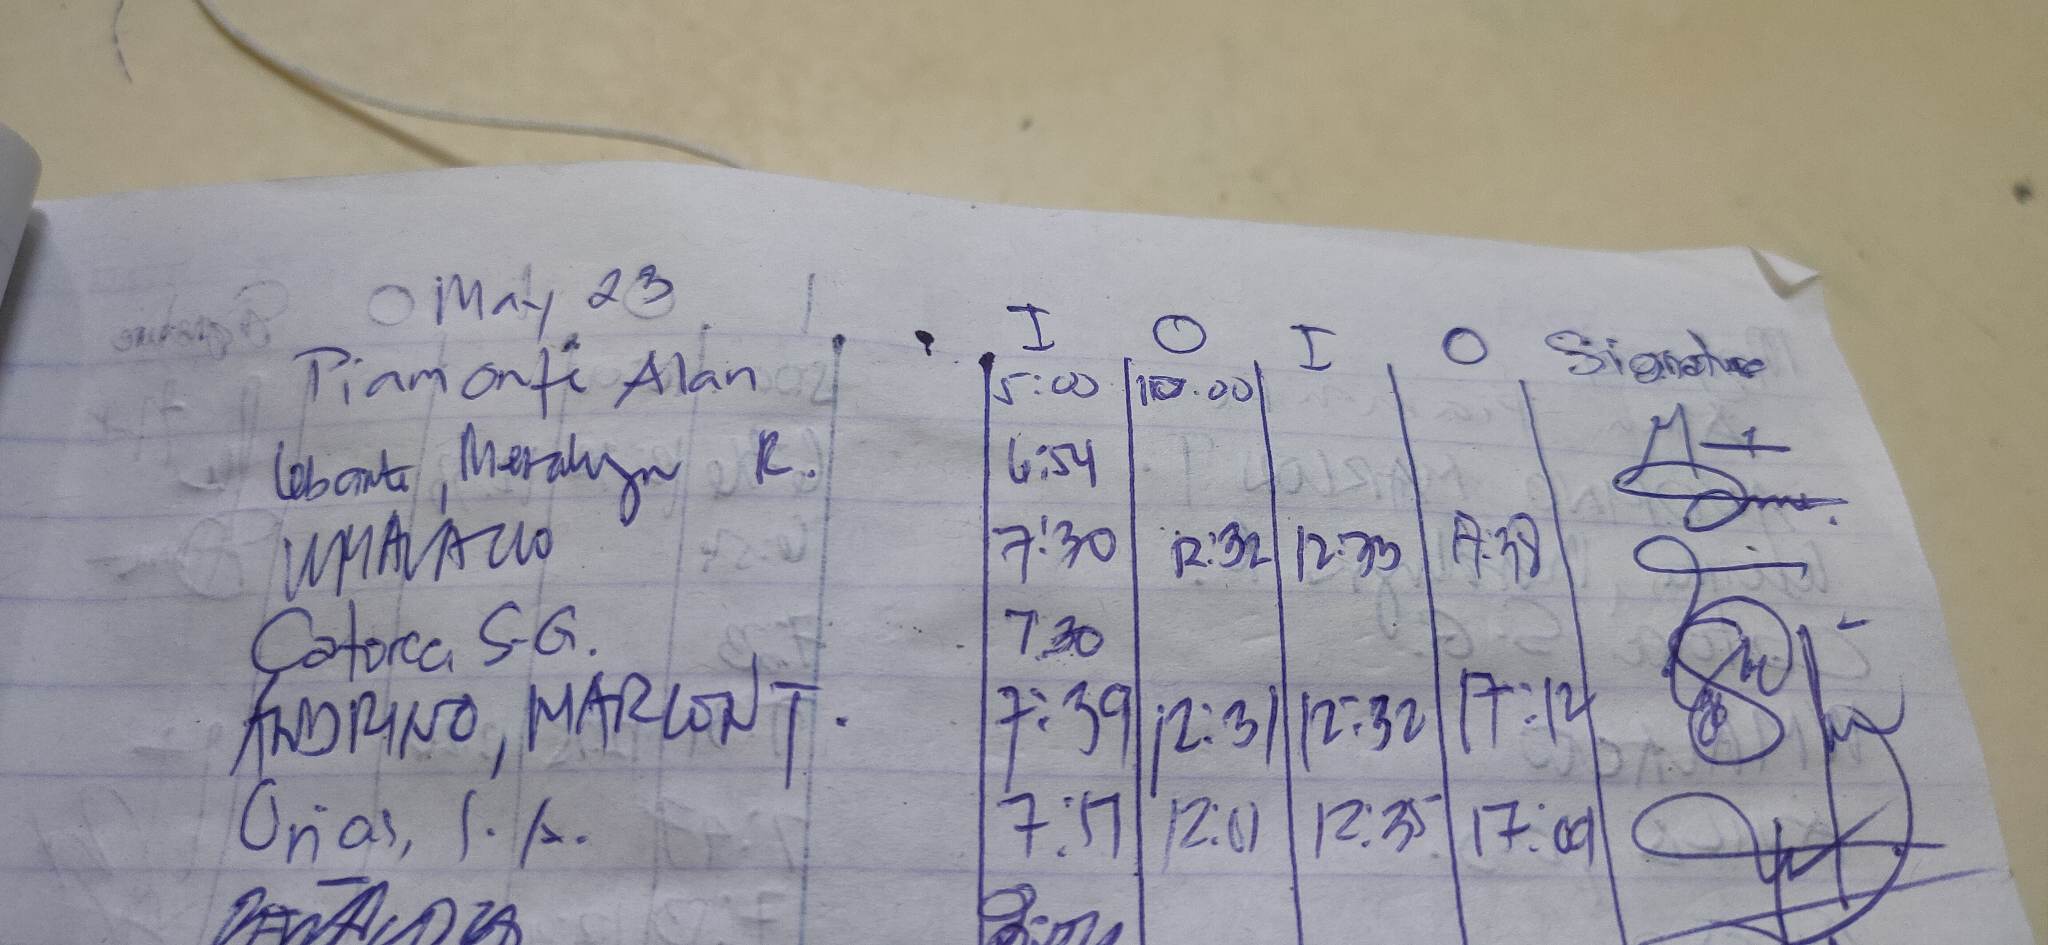 May 23
I O I O Signature
Piamonte Alan 5:00 10:00
Meralyn R. 6:54
UMALACIO 7:30 12:32 12:33 17:38
Catorca S.G. 7:30
ANDRINO, MARLON T. 7:39 12:31 12:32 17:12
Orias, J. A. 12:01 12:35 17:09